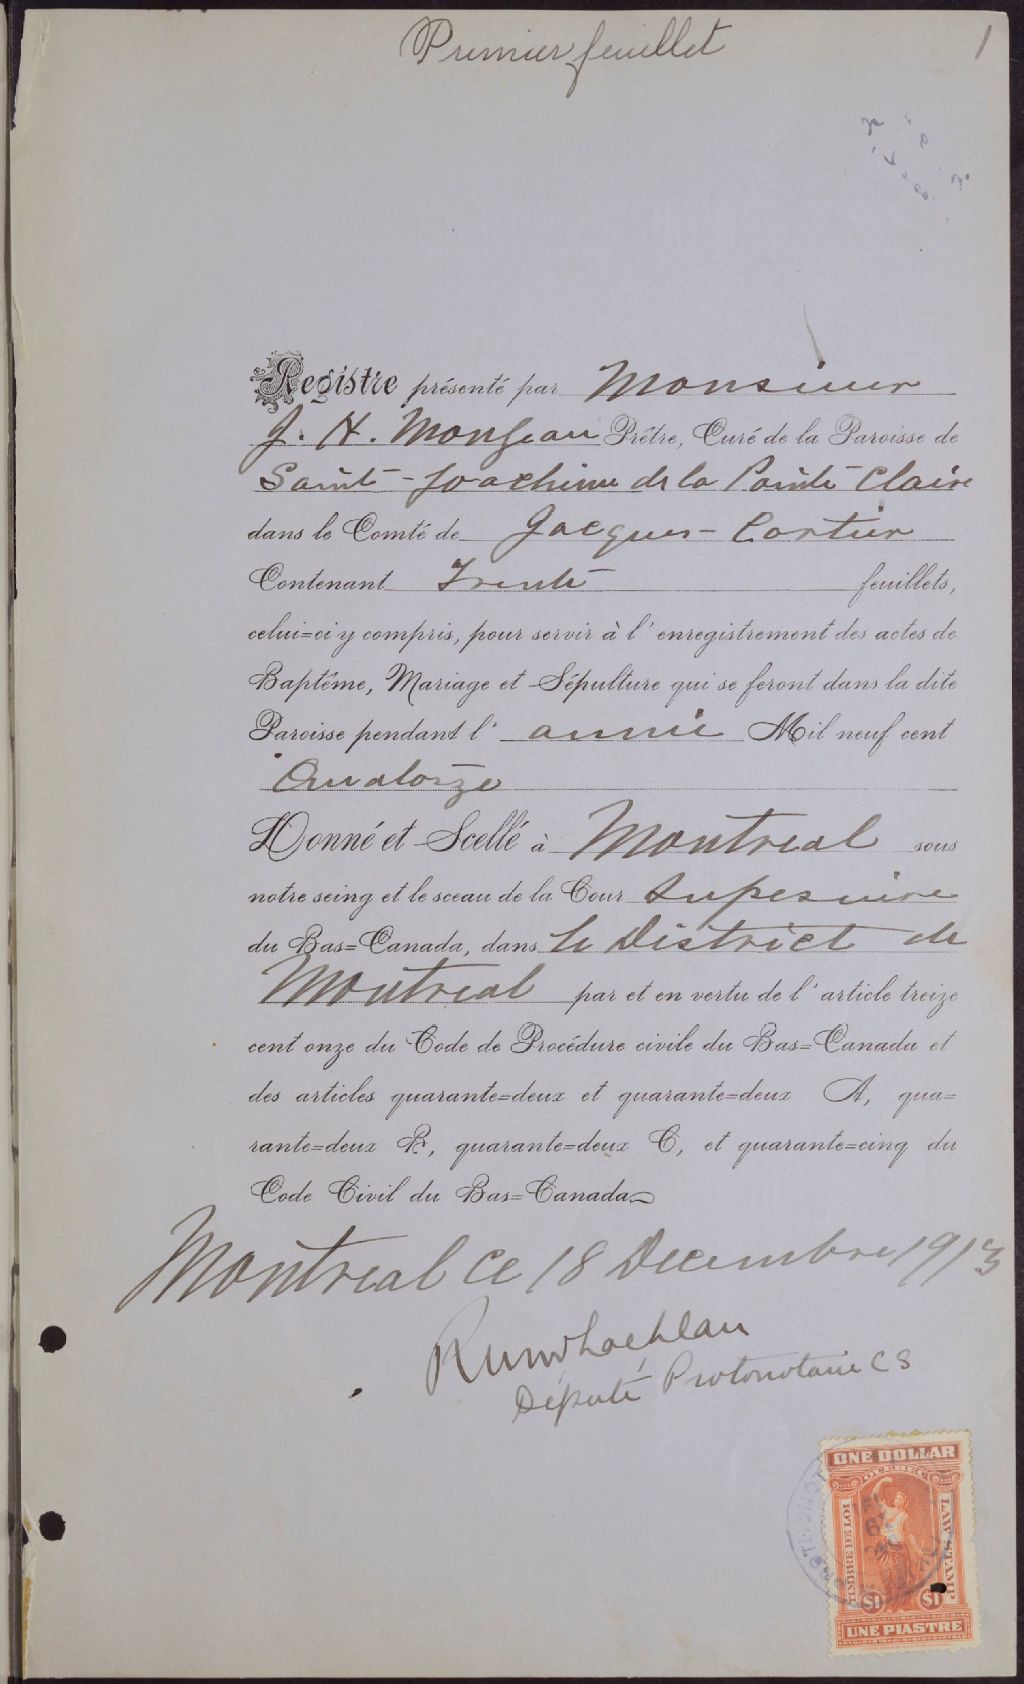 Premier feuillet
1
Registre présenté par Monsieur
J. H. Mongeau Prêtre, Curé de la Paroisse de
Saint-Joachim de la Pointe Claire
dans le Comté de Jacques-Cartier
Contenant Trente feuillets,
celui=ci y compris, pour servir à l'enregistrement des actes de
Baptême, Mariage et Sépulture qui se feront dans la dite
Paroisse pendant l' année Mil neuf cent
Quatorze
Donné et Scellé à Montreal sous
notre seing et le sceau de la Cour Superieure
du Bas=Canada, dans le District de
Montreal par et en vertu de l'article treize
cent onze du Code de Procédure civile du Bas=Canada et
des articles quarante=deux et quarante=deux A, qua=
rante=deux B, quarante=deux C, et quarante=cinq du
Code Civil du Bas=Canada
Montreal ce 18 Decembre 1913
Député Protonotaire C S
ONE DOLLAR
QUEBEC
TIMBRE DE LOI
LAW STAMP
$1 $1
UNE PIASTRE